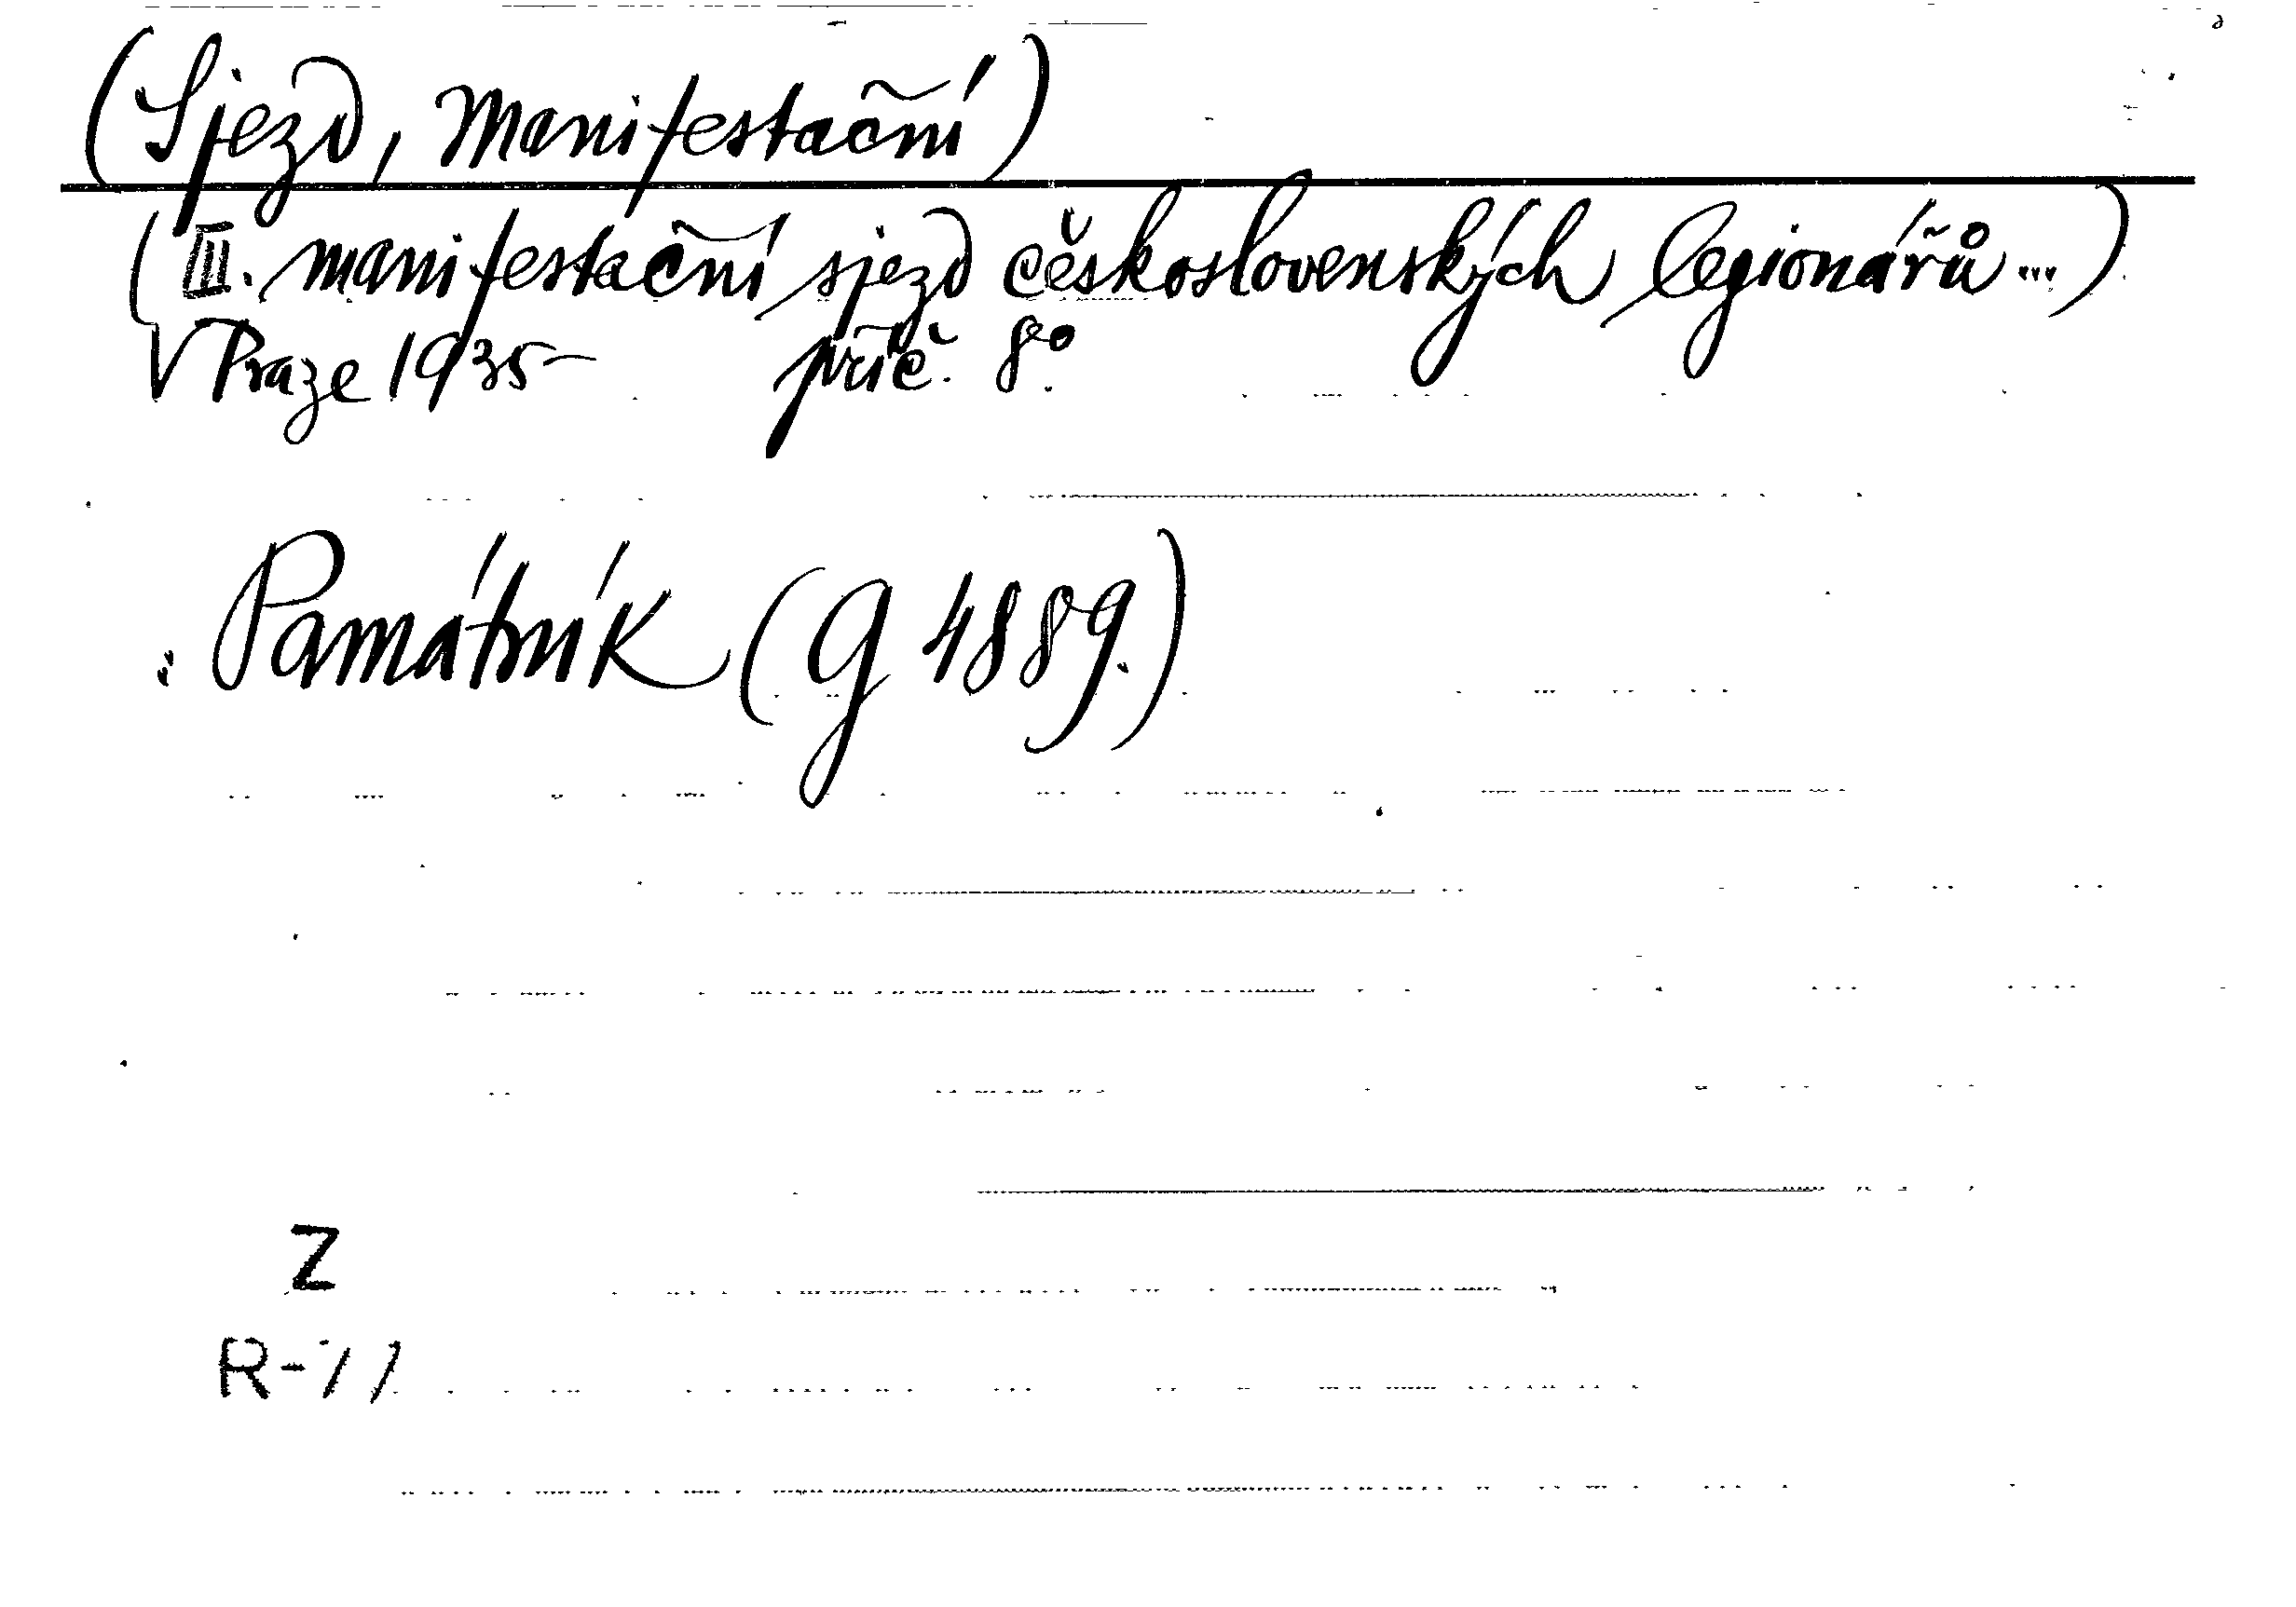 (Sjezd, Manifestační)
(III. manifestační sjezd československých legionářů...)
V Praze 1935 příč. 8°.
: Památník (G 4889.)
Z
R-77